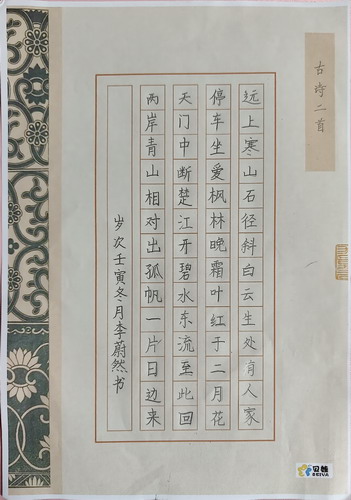 古诗二首
远上寒山石径斜白云生处有人家
停车坐爱枫林晚霜叶红于二月花
天门中断楚江开碧水东流至此回
两岸青山相对出孤帆一片日边来
岁次壬寅冬月李蔚然书